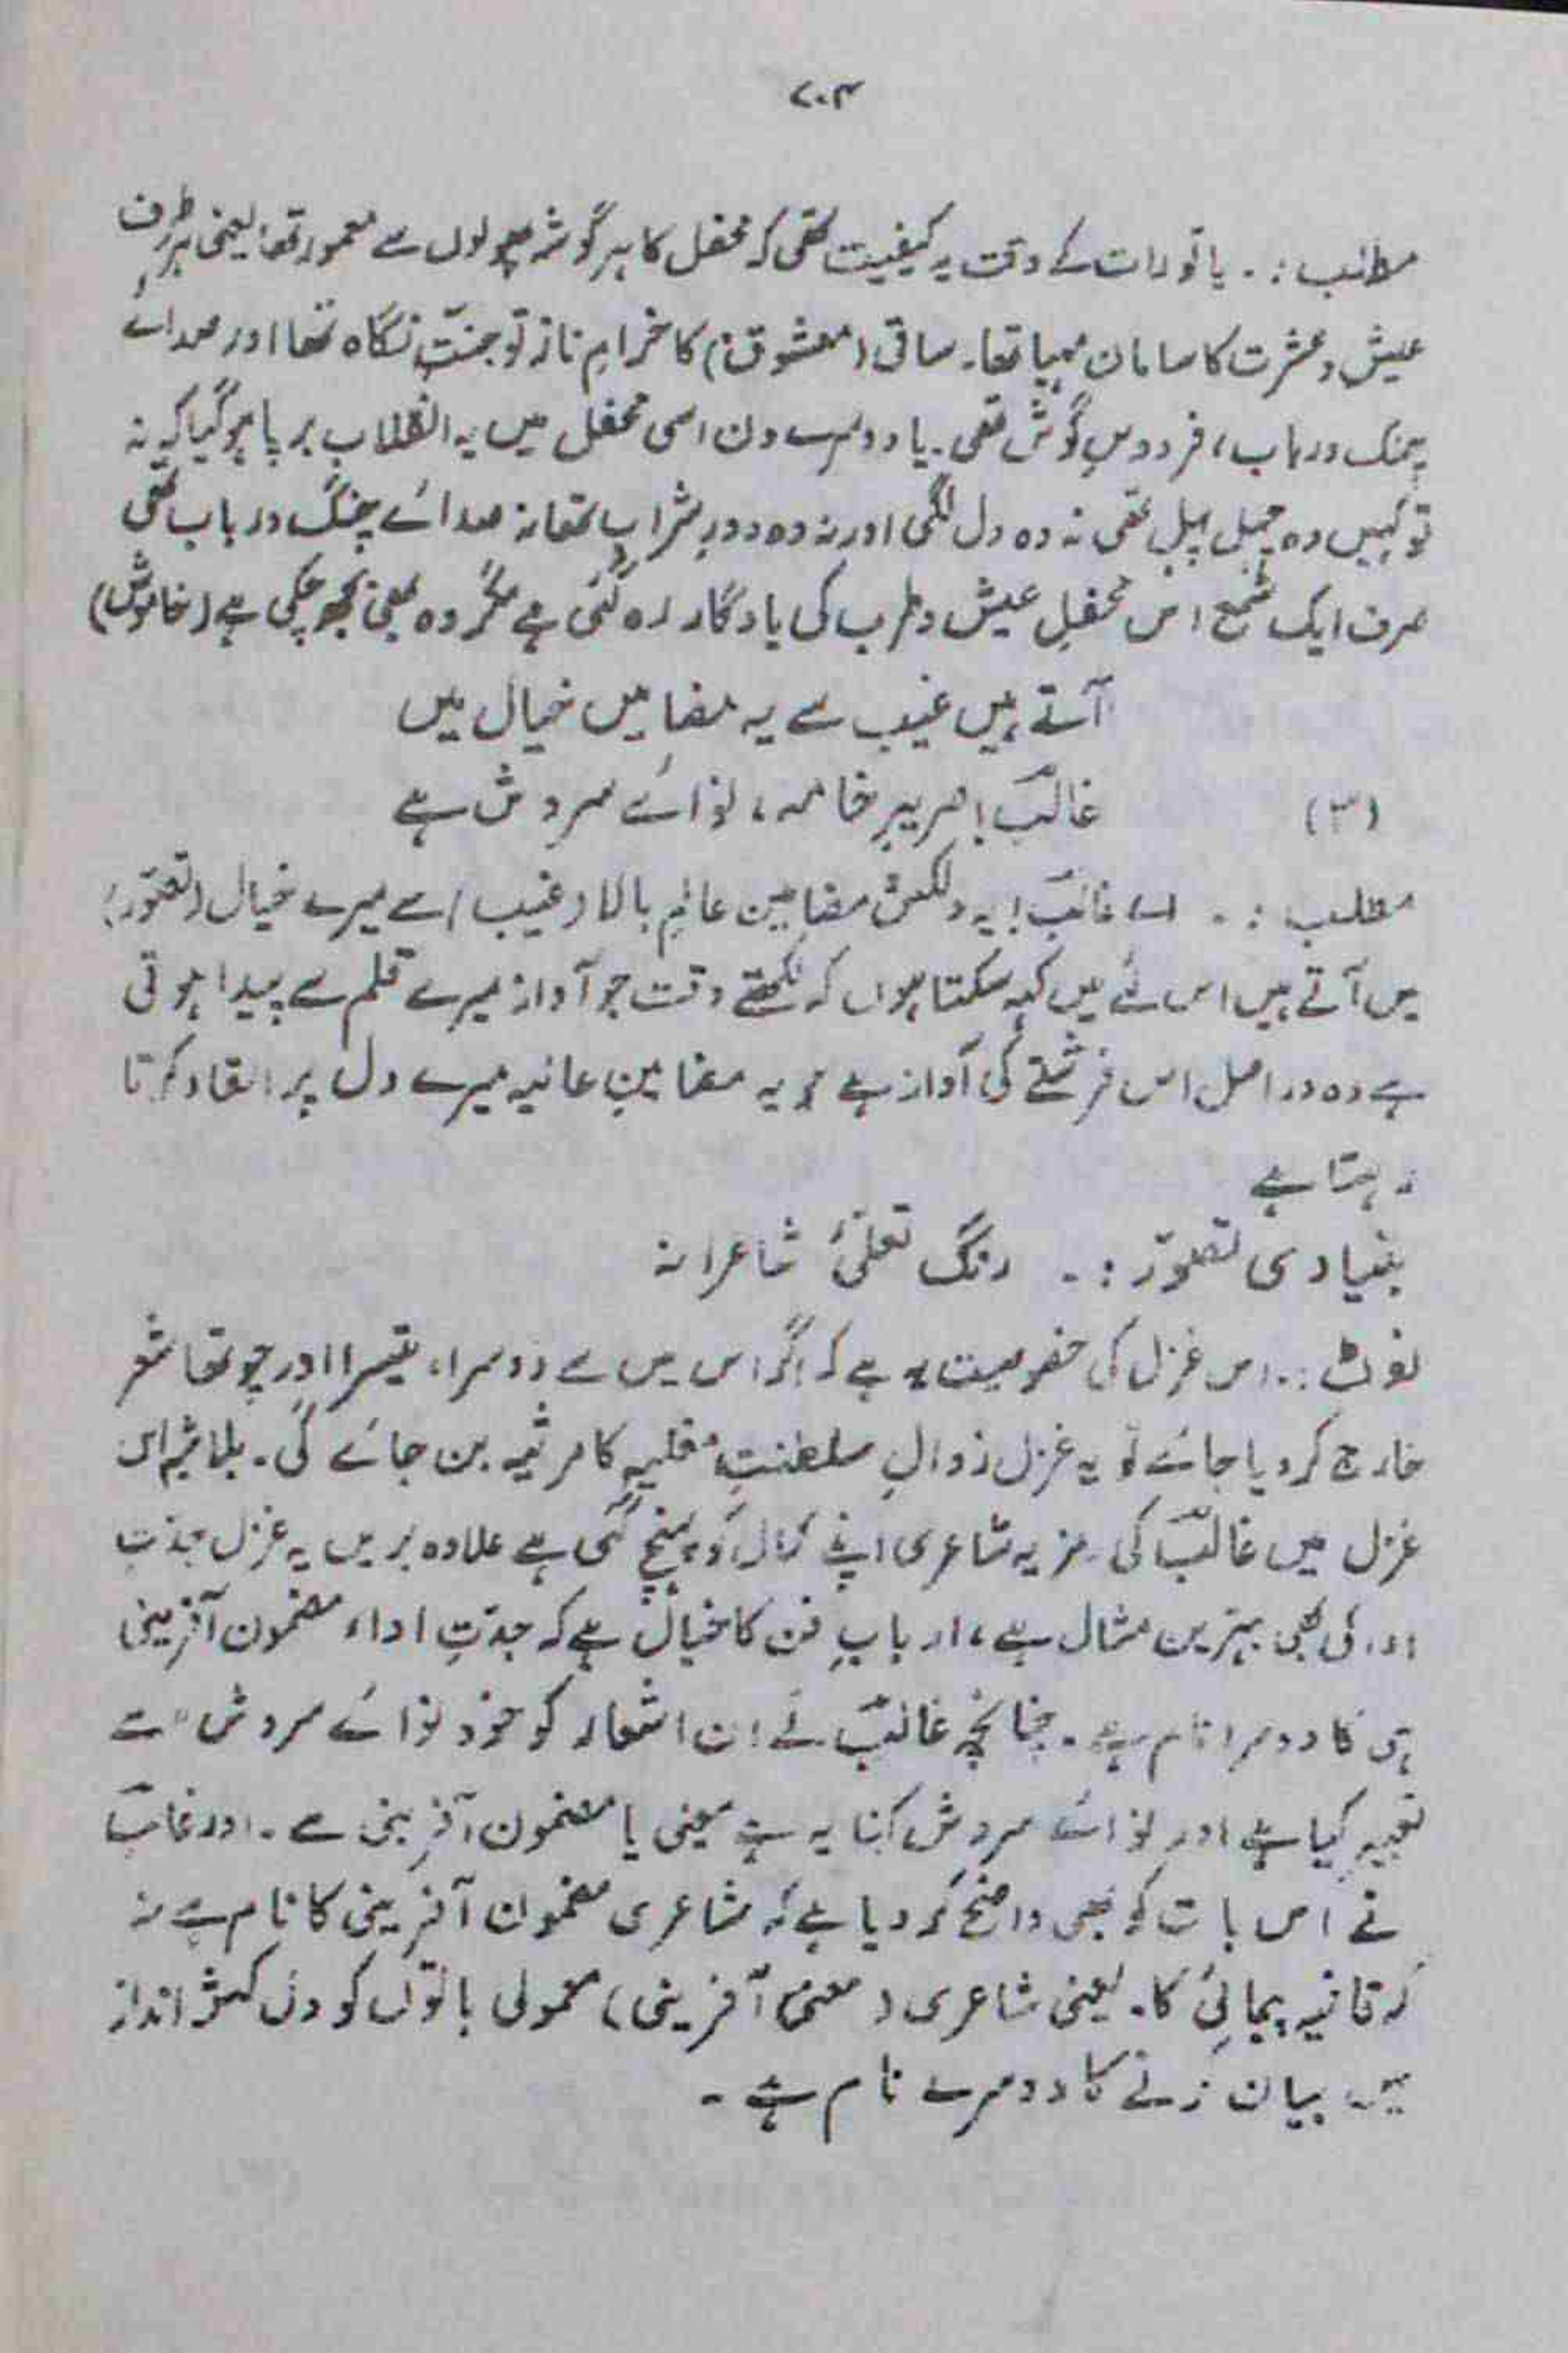 ۷۰۴
مطلب :۔ یا تو رات کے وقت یہ کیفیت تھی کہ محفل کا ہر گوشہ پھولوں سے معمور تھا یعنی ہر طرف
عیش و عشرت کا سامان مہیا تھا۔ ساقی (معشوق) کا خرامِ ناز تو جنتِ نگاہ تھا اور صدائے
چنگ و رباب، فردوسِ گوش تھی۔ یا دوسرے دن اسی محفل میں یہ انقلاب برپا ہو گیا کہ نہ
تو کہیں وہ چہل پہل تھی نہ وہ دل لگی اور نہ وہ دورِ شراب تھا نہ صدائے چنگ و رباب تھی
صرف ایک شمع اس محفلِ عیش و طرب کی یادگار رہ گئی ہے مگر وہ بھی بجھ چکی ہے (خاموش)
آتے ہیں غیب سے یہ مضامیں خیال میں
(۳) غالبؔ! صریرِ خامہ، نوائے سروش ہے
مطلب :۔ اے غالبؔ! یہ دلکش مضامین عالمِ بالا (غیب) سے میرے خیال (تصوّر)
میں آتے ہیں اس لئے میں کہہ سکتا ہوں کہ لکھتے وقت جو آواز میرے قلم سے پیدا ہوتی
ہے وہ دراصل اس فرشتے کی آواز ہے جو یہ مضامینِ عالیہ میرے دل پر القاء کرتا
رہتا ہے
بنیادی تصوّر :۔ رنگ تعلّیٔ شاعرانہ
نوٹ :۔ اس غزل کی خصوصیت یہ ہے کہ اگر اس میں سے دوسرا، تیسرا اور چوتھا شعر
خارج کر دیا جائے تو یہ غزل زوالِ سلطنتِ مغلیہ کا مرثیہ بن جائے گی۔ بلاشبہ اس
غزل میں غالبؔ کی رمزیہ شاعری اپنے کمال کو پہنچ گئی ہے علاوہ بریں یہ غزل جدّتِ
ادا کی بھی بہترین مثال ہے، اربابِ فن کا خیال ہے کہ جدّتِ ادا، مضمون آفرینی
ہی کا دوسرا نام ہے۔ چنانچہ غالبؔ نے ان اشعار کو خود نوائے سروش" سے
تعبیر کیا ہے اور نوائے سروش کنایہ ہے معنی یا مضمون آفرینی سے۔ اور غالبؔ
نے اس بات کو بھی واضح کر دیا ہے کہ شاعری مضمون آفرینی کا نام ہے نہ
کہ قافیہ پیمائی کا۔ یعنی شاعری (معنی آفرینی) معمولی باتوں کو دل کش انداز
میں بیان کرنے کا دوسرے نام ہے۔